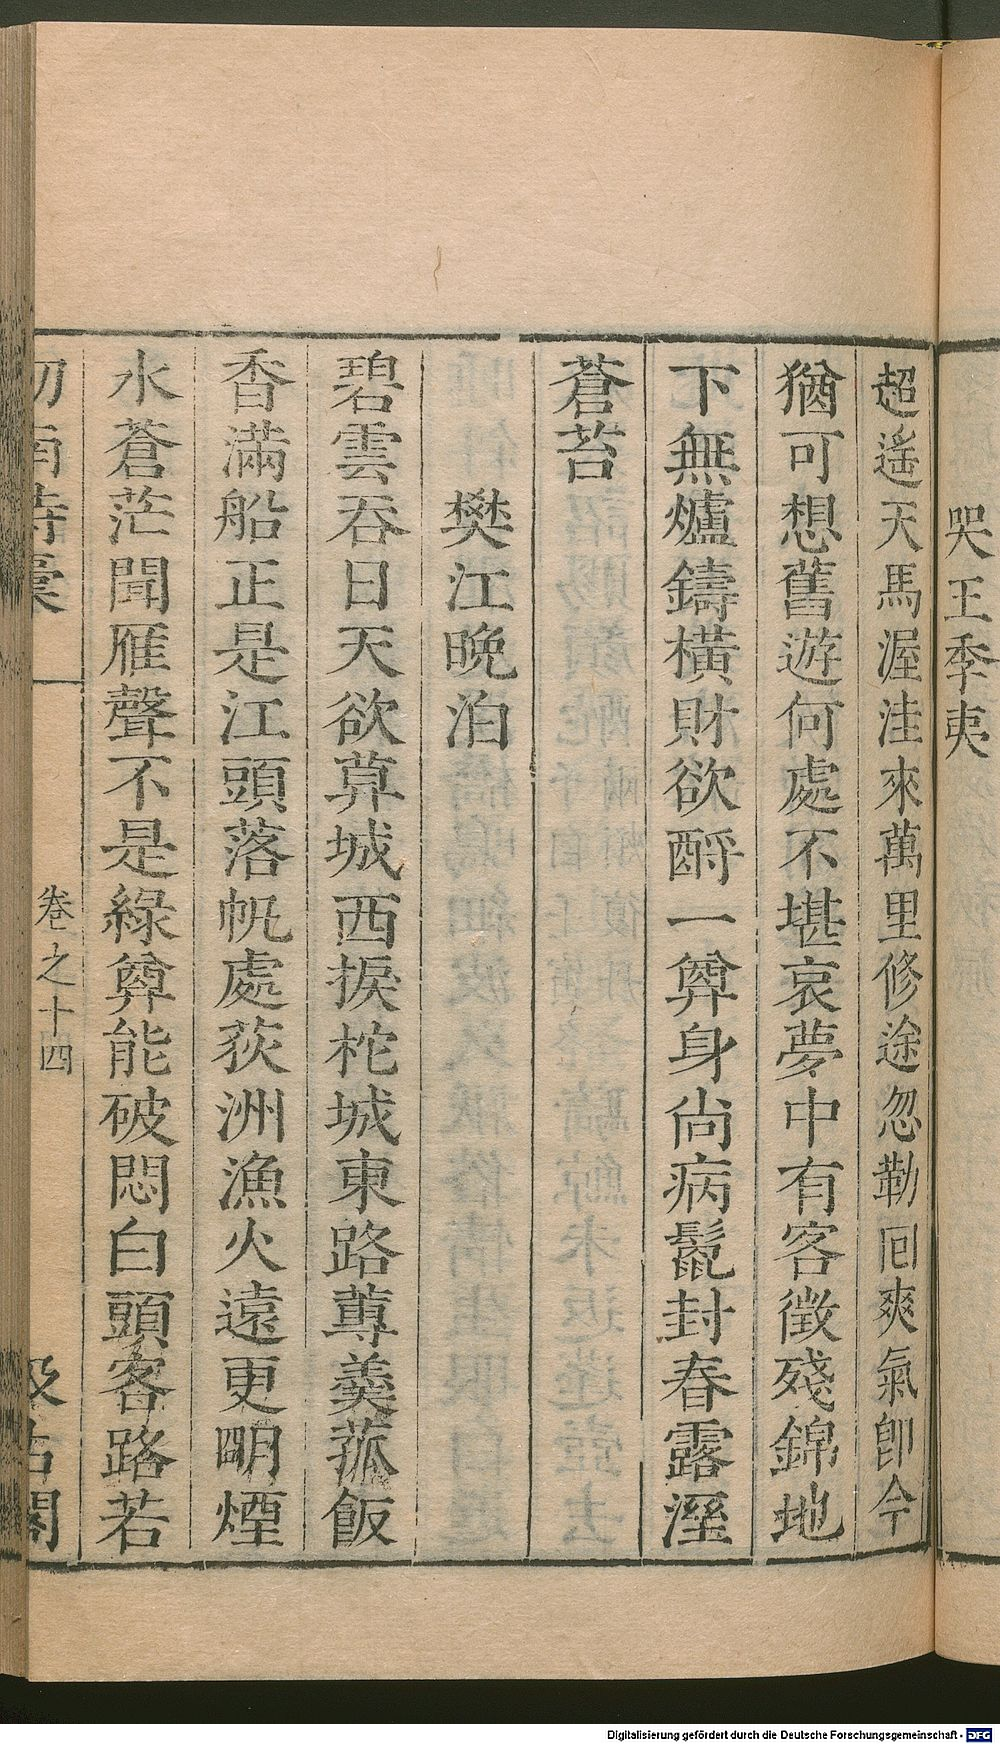 哭王季夷
超遙天馬渥洼來萬里修途忽勒囘爽氣卽今
猶可想舊遊何處不堪哀夢中有客徵殘錦地
下無爐鑄橫財欲酹一尊身尚病鬣封春露溼
蒼苔
樊江晚泊
碧雲吞日天欲莫城西捩柁城東路蓴羹菰飯
香滿船正是江頭落帆處荻洲漁火遠更明煙
水蒼茫聞雁聲不是綠尊能破悶白頭客路若
劒南詩稾
卷之十四
汲古閣
Digitalisierung gefördert durch die Deutsche Forschungsgemeinschaft - DFG